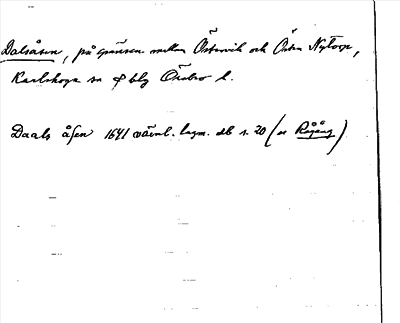 Dalsåsen, på gränsen mellan Östervik och Östra Nytorp,
Karlskoga sn o blg Örebro l.
Daals åsen 1641 värml. lagm. db s. 20 (se Rågång)